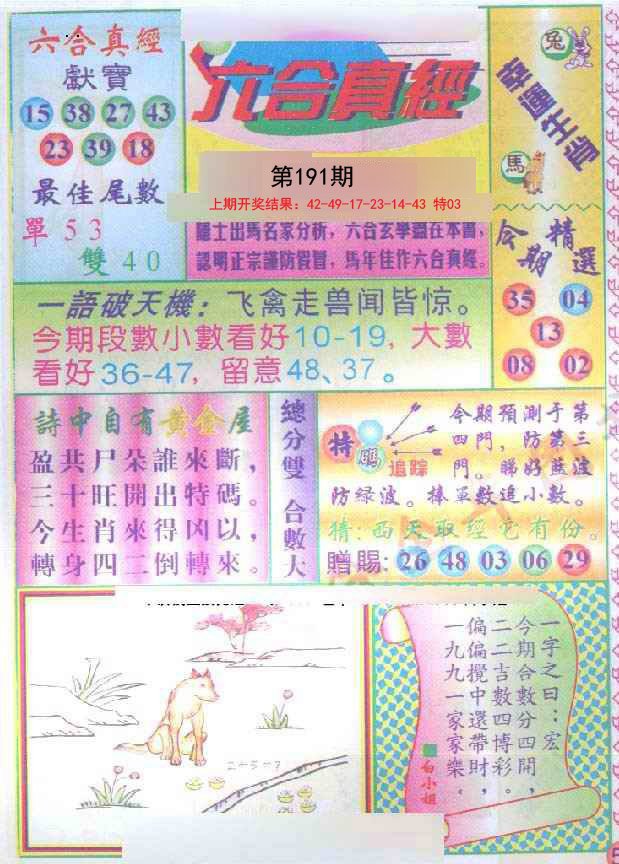 六合真經
獻寶
15 38 27 43
23 39 18
最佳尾數
單 5 3
雙 4 0
六合真經
第191期
上期开奖结果: 42-49-17-23-14-43 特03
隱士出馬名家分析，六合玄學盡在本書，
認明正宗謹防假冒，馬年佳作六合真經。
兔
幸運生肖
馬
今期精選
35 04
13
08 02
一語破天機：飞禽走兽闻皆惊。
今期段數小數看好10-19, 大數
看好36-47, 留意48、37。
詩中自有黃金屋
盈共尸朵誰來斷，
三十旺開出特碼。
今生肖來得凶以，
轉身四二倒轉來。
總分雙 合數大
特碼
追踪
今期預測于第
四門，防第三
門。睇好蓝波
防绿波。捧單數追小數。
猜:西天取經它有份。
贈賜: 26 48 03 06 29
一字之曰：宏
今期合數分四開，
二二吉數四博彩。
偏偏攪中還帶財，
一九九一家家樂。
白小姐